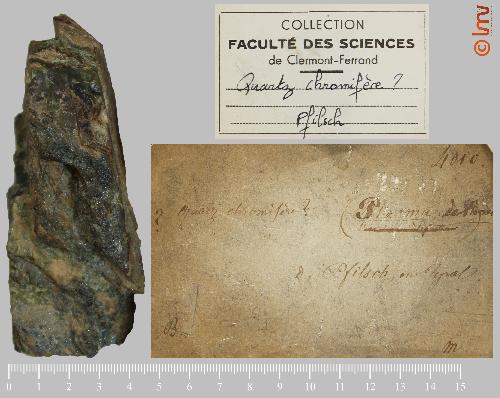 COLLECTION
FACULTÉ DES SCIENCES
de Clermont-Ferrand
Quartz chromifère ?
Pfilsch
© lmv
4010
? Quartz chromifère ?
de Pfilsch, en
B
m
0 1 2 3 4 5 6 7 8 9 10 11 12 13 14 15